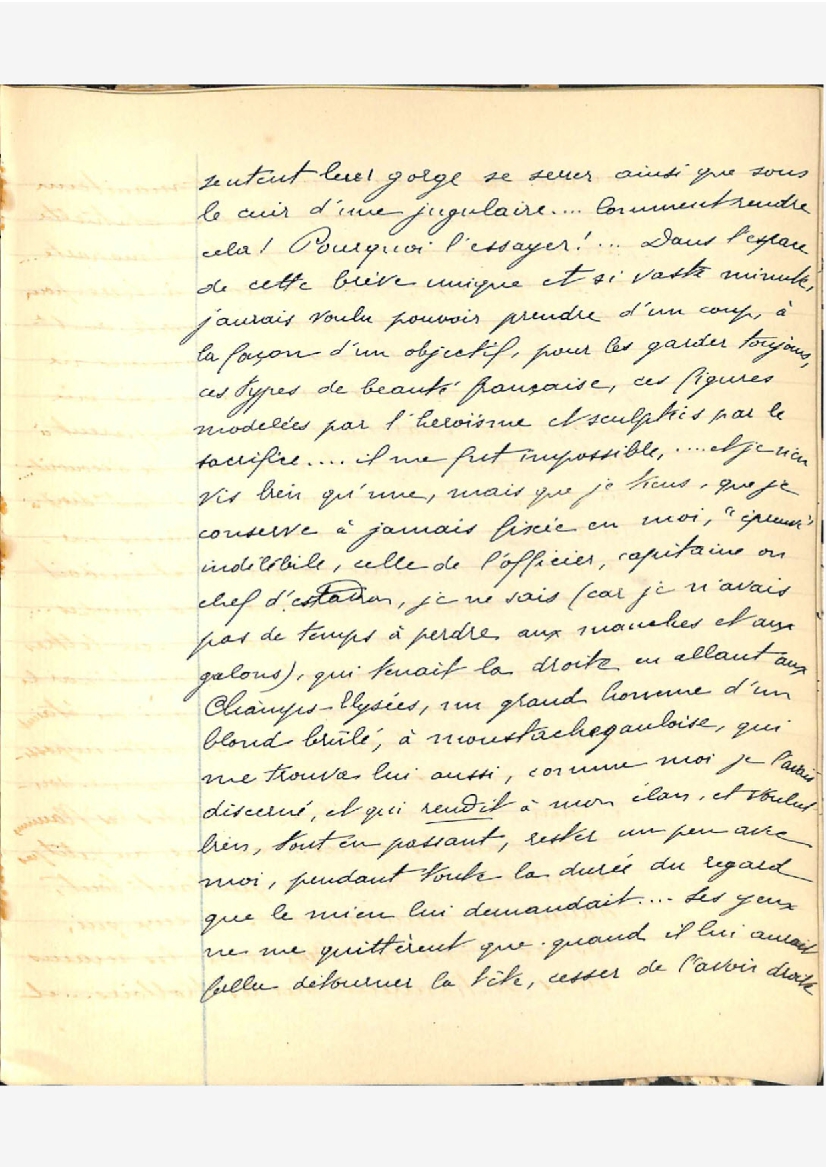 sentent leur gorge se serrer ainsi que sous
le cuir d'une jugulaire.... Comment rendre
cela! Pourquoi l'essayer!... Dans l'espace
de cette brève unique et si vaste minute,
j'aurais voulu pouvoir prendre d'un coup, à
la façon d'un objectif, pour les garder toujours,
ces types de beauté française, ces figures
modelées par l'héroïsme et sculptés par le
sacrifice.... il me fut impossible,.... et je n'en
vis bien qu'une, mais que je tiens, que je
conserve à jamais fixée en moi, "épreuve"
indélébile, celle de l'officier, capitaine ou
chef d'escadron, je ne sais (car je n'avais
pas de temps à perdre aux manches et aux
galons), qui tenait la droite en allant aux
Champs-Elysées, un grand homme d'un
blond brûlé, à moustache gauloise, qui
me trouva lui aussi, comme moi je l'avais
discerné, et qui rendit à mon élan, et voulut
bien, tout en passant, rester un peu avec
moi, pendant toute la durée du regard
que le mien lui demandait... Ses yeux
ne me quittèrent que quand il lui aurait
fallu détourner la tête, cesser de l'avoir droite